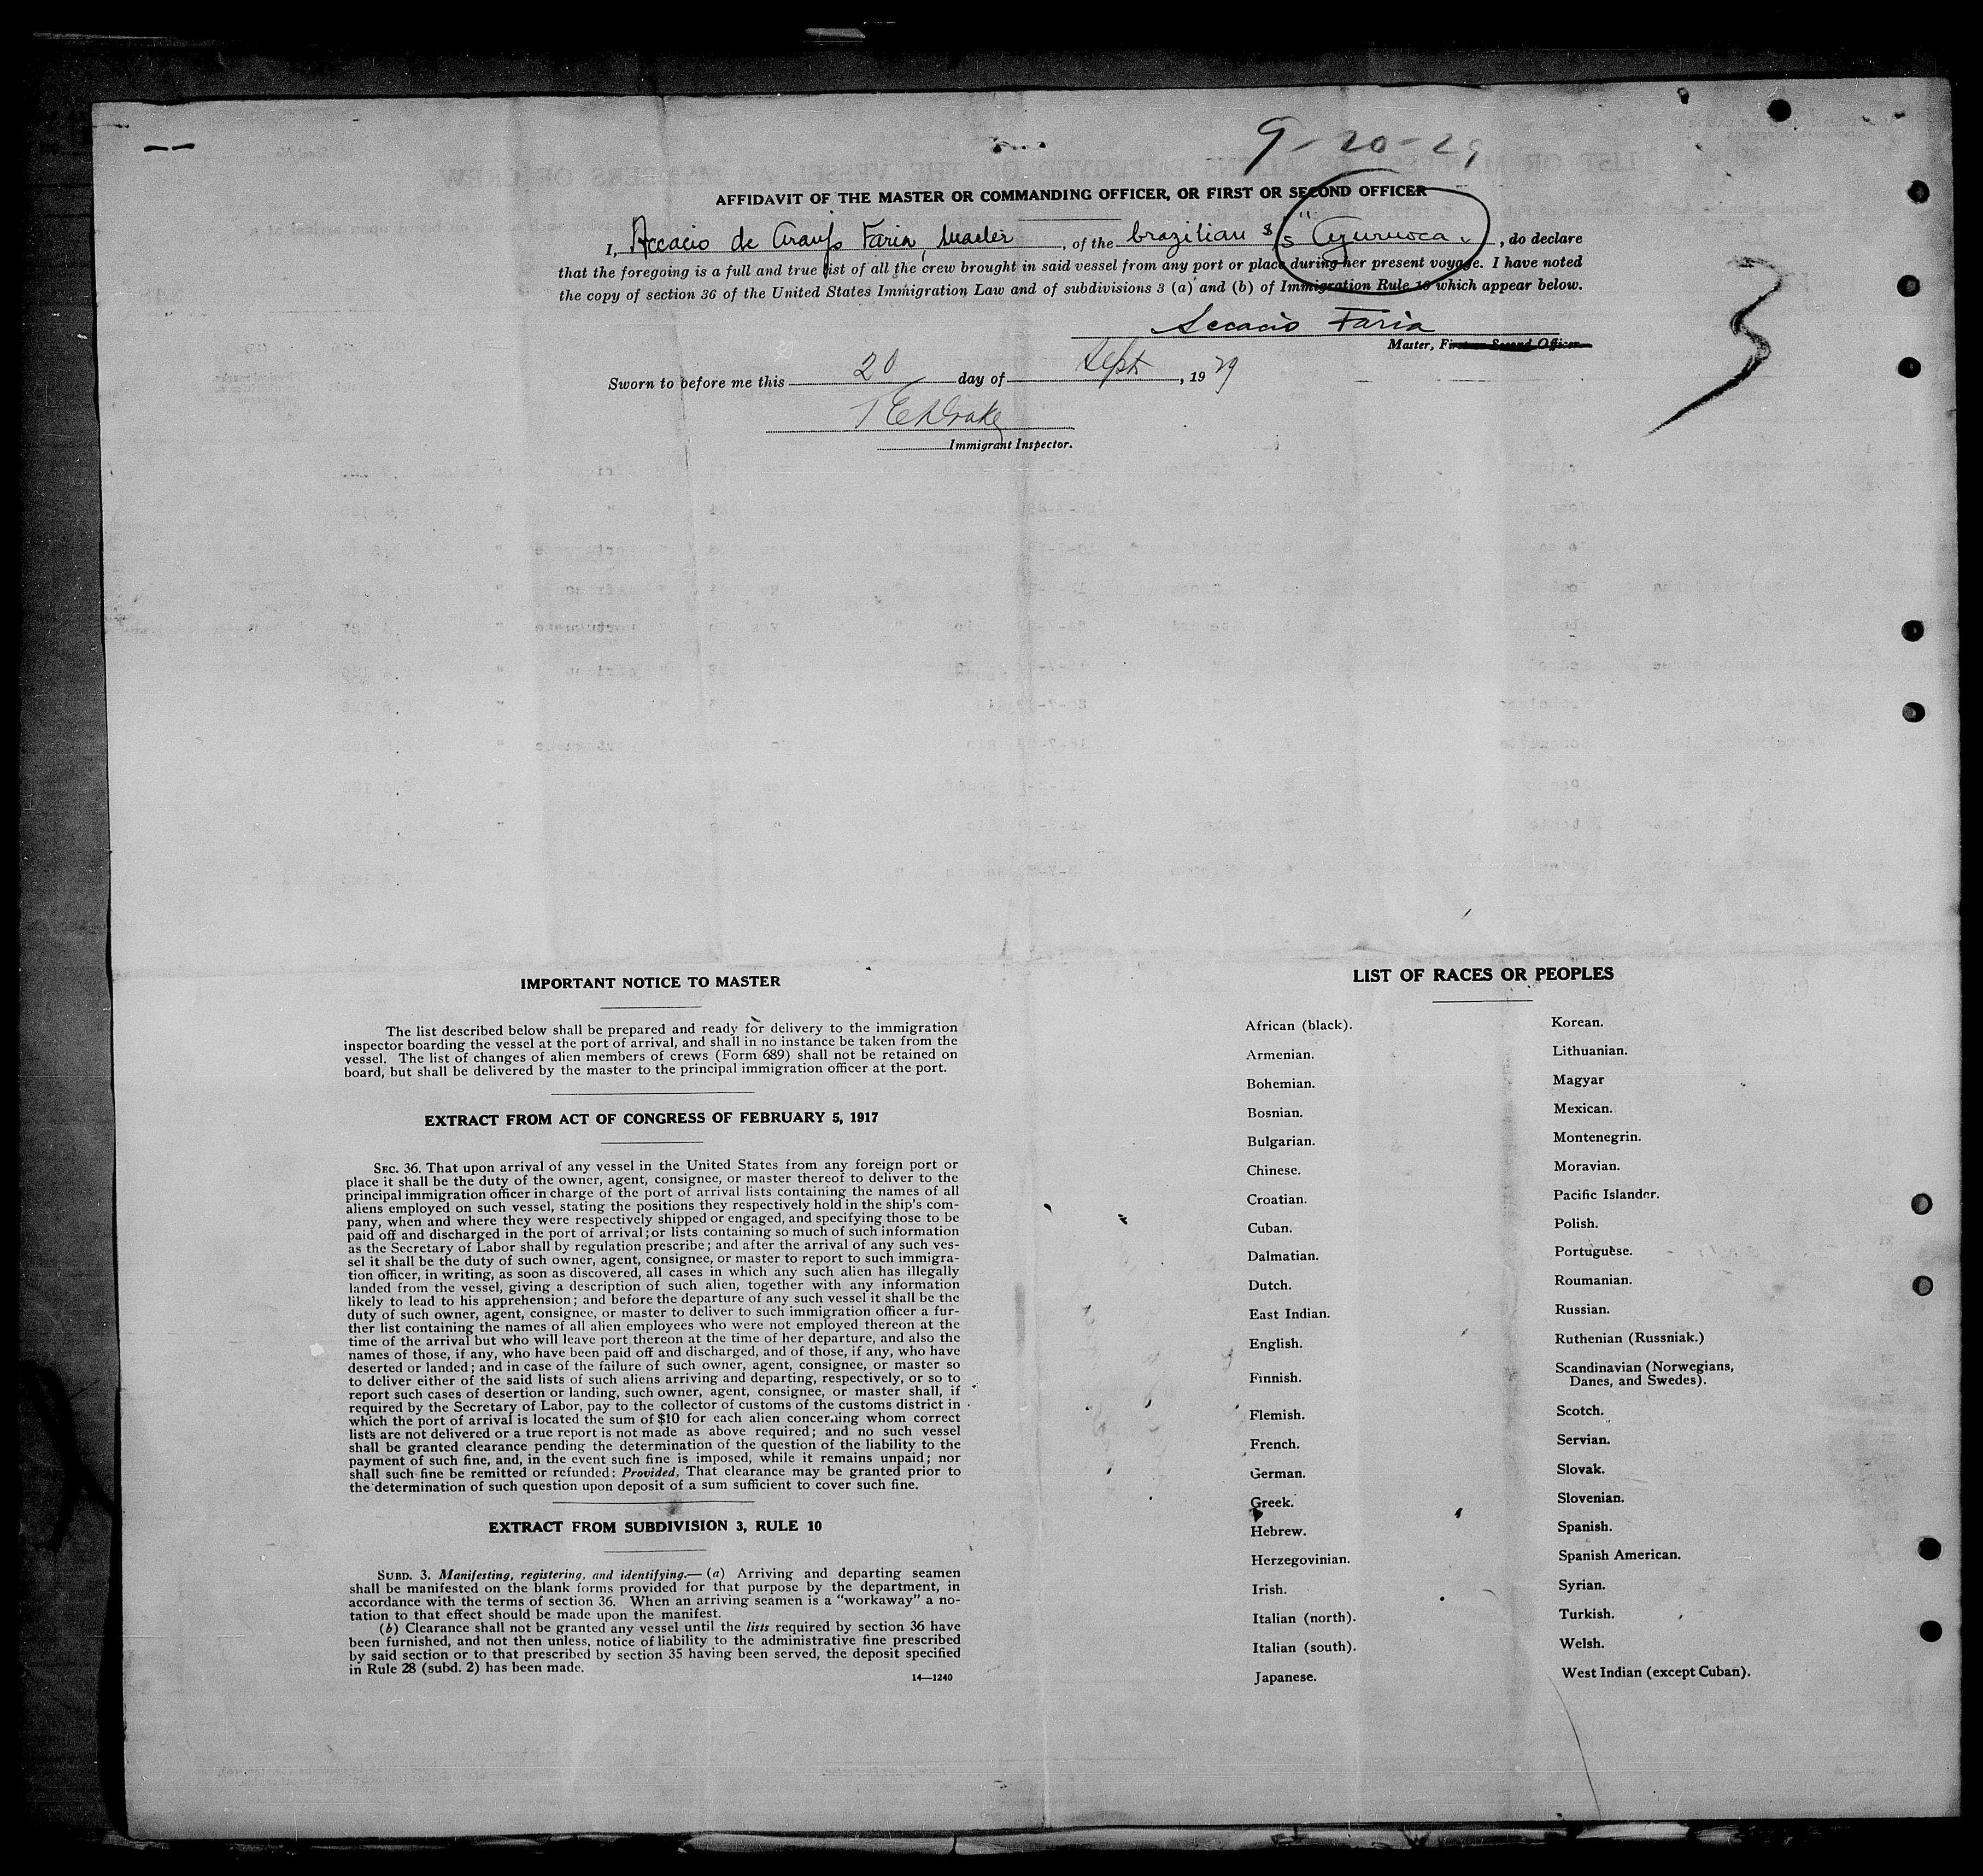 9-20-29
AFFIDAVIT OF THE MASTER OR COMMANDING OFFICER, OR FIRST OR SECOND OFFICER
I, Accacio de Araujo Faria, Master, of the brazilian S/S "Ayuruoca", do declare
that the foregoing is a full and true list of all the crew brought in said vessel from any port or place during her present voyage. I have noted
the copy of section 36 of the United States Immigration Law and of subdivisions 3 (a) and (b) of Immigration Rule 10 which appear below.
Accacio Faria
Master, First or Second Officer.
3
Sworn to before me this 20 day of Sept, 1929
Drake
Immigrant Inspector.
IMPORTANT NOTICE TO MASTER
The list described below shall be prepared and ready for delivery to the immigration
inspector boarding the vessel at the port of arrival, and shall in no instance be taken from the
vessel. The list of changes of alien members of crews (Form 689) shall not be retained on
board, but shall be delivered by the master to the principal immigration officer at the port.
EXTRACT FROM ACT OF CONGRESS OF FEBRUARY 5, 1917
SEC. 36. That upon arrival of any vessel in the United States from any foreign port or
place it shall be the duty of the owner, agent, consignee, or master thereof to deliver to the
principal immigration officer in charge of the port of arrival lists containing the names of all
aliens employed on such vessel, stating the positions they respectively hold in the ship's com-
pany, when and where they were respectively shipped or engaged, and specifying those to be
paid off and discharged in the port of arrival; or lists containing so much of such information
as the Secretary of Labor shall by regulation prescribe; and after the arrival of any such ves-
sel it shall be the duty of such owner, agent, consignee, or master to report to such immigra-
tion officer, in writing, as soon as discovered, all cases in which any such alien has illegally
landed from the vessel, giving a description of such alien, together with any information
likely to lead to his apprehension; and before the departure of any such vessel it shall be the
duty of such owner, agent, consignee, or master to deliver to such immigration officer a fur-
ther list containing the names of all alien employees who were not employed thereon at the
time of the arrival but who will leave port thereon at the time of her departure, and also the
names of those, if any, who have been paid off and discharged, and of those, if any, who have
deserted or landed; and in case of the failure of such owner, agent, consignee, or master so
to deliver either of the said lists of such aliens arriving and departing, respectively, or so to
report such cases of desertion or landing, such owner, agent, consignee, or master shall, if
required by the Secretary of Labor, pay to the collector of customs of the customs district in
which the port of arrival is located the sum of $10 for each alien concerning whom correct
lists are not delivered or a true report is not made as above required; and no such vessel
shall be granted clearance pending the determination of the question of the liability to the
payment of such fine, and, in the event such fine is imposed, while it remains unpaid; nor
shall such fine be remitted or refunded: Provided, That clearance may be granted prior to
the determination of such question upon deposit of a sum sufficient to cover such fine.
EXTRACT FROM SUBDIVISION 3, RULE 10
SUBD. 3. Manifesting, registering, and identifying.—(a) Arriving and departing seamen
shall be manifested on the blank forms provided for that purpose by the department, in
accordance with the terms of section 36. When an arriving seamen is a "workaway" a no-
tation to that effect should be made upon the manifest.
(b) Clearance shall not be granted any vessel until the lists required by section 36 have
been furnished, and not then unless, notice of liability to the administrative fine prescribed
by said section or to that prescribed by section 35 having been served, the deposit specified
in Rule 28 (subd. 2) has been made.
14—1240
LIST OF RACES OR PEOPLES
African (black).
Armenian.
Bohemian.
Bosnian.
Bulgarian.
Chinese.
Croatian.
Cuban.
Dalmatian.
Dutch.
East Indian.
English.
Finnish.
Flemish.
French.
German.
Greek.
Hebrew.
Herzegovinian.
Irish.
Italian (north).
Italian (south).
Japanese.
Korean.
Lithuanian.
Magyar
Mexican.
Montenegrin.
Moravian.
Pacific Islander.
Polish.
Portuguese.
Roumanian.
Russian.
Ruthenian (Russniak.)
Scandinavian (Norwegians,
Danes, and Swedes).
Scotch.
Servian.
Slovak.
Slovenian.
Spanish.
Spanish American.
Syrian.
Turkish.
Welsh.
West Indian (except Cuban).